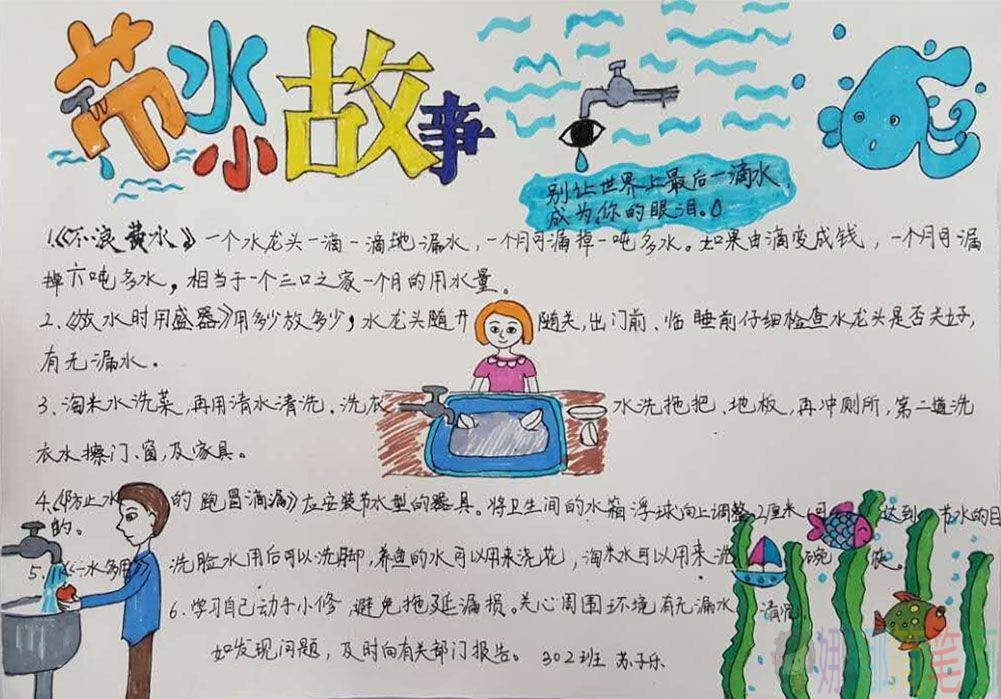 节水小故事
别让世界上最后一滴水,
成为你的眼泪。
1.《不浪费水》一个水龙头一滴一滴地漏水,一个月可漏掉一吨多水。如果由滴变成钱,一个月可漏
掉六吨多水,相当于一个三口之家一个月的用水量。
2、《放水时用盛器》用多少放多少,水龙头随开随关,出门前、临睡前仔细检查水龙头是否关好,
有无漏水。
3、淘米水洗菜,再用清水清洗.洗衣水洗拖把、地板,再冲厕所,第二道洗
衣水擦门、窗,及家具。
4.《防止水的跑冒滴漏》应安装节水型的器具。将卫生间的水箱浮球向上调整2厘米,可达到节水的目
的。
5.《一水多用 洗脸水用后可以洗脚,养鱼的水可以用来浇花,淘米水可以用来洗碗筷。
6.学习自己动手小修,避免拖延漏损。关心周围环境有无漏水情况,
如发现问题,及时向有关部门报告。302班 苏子乐